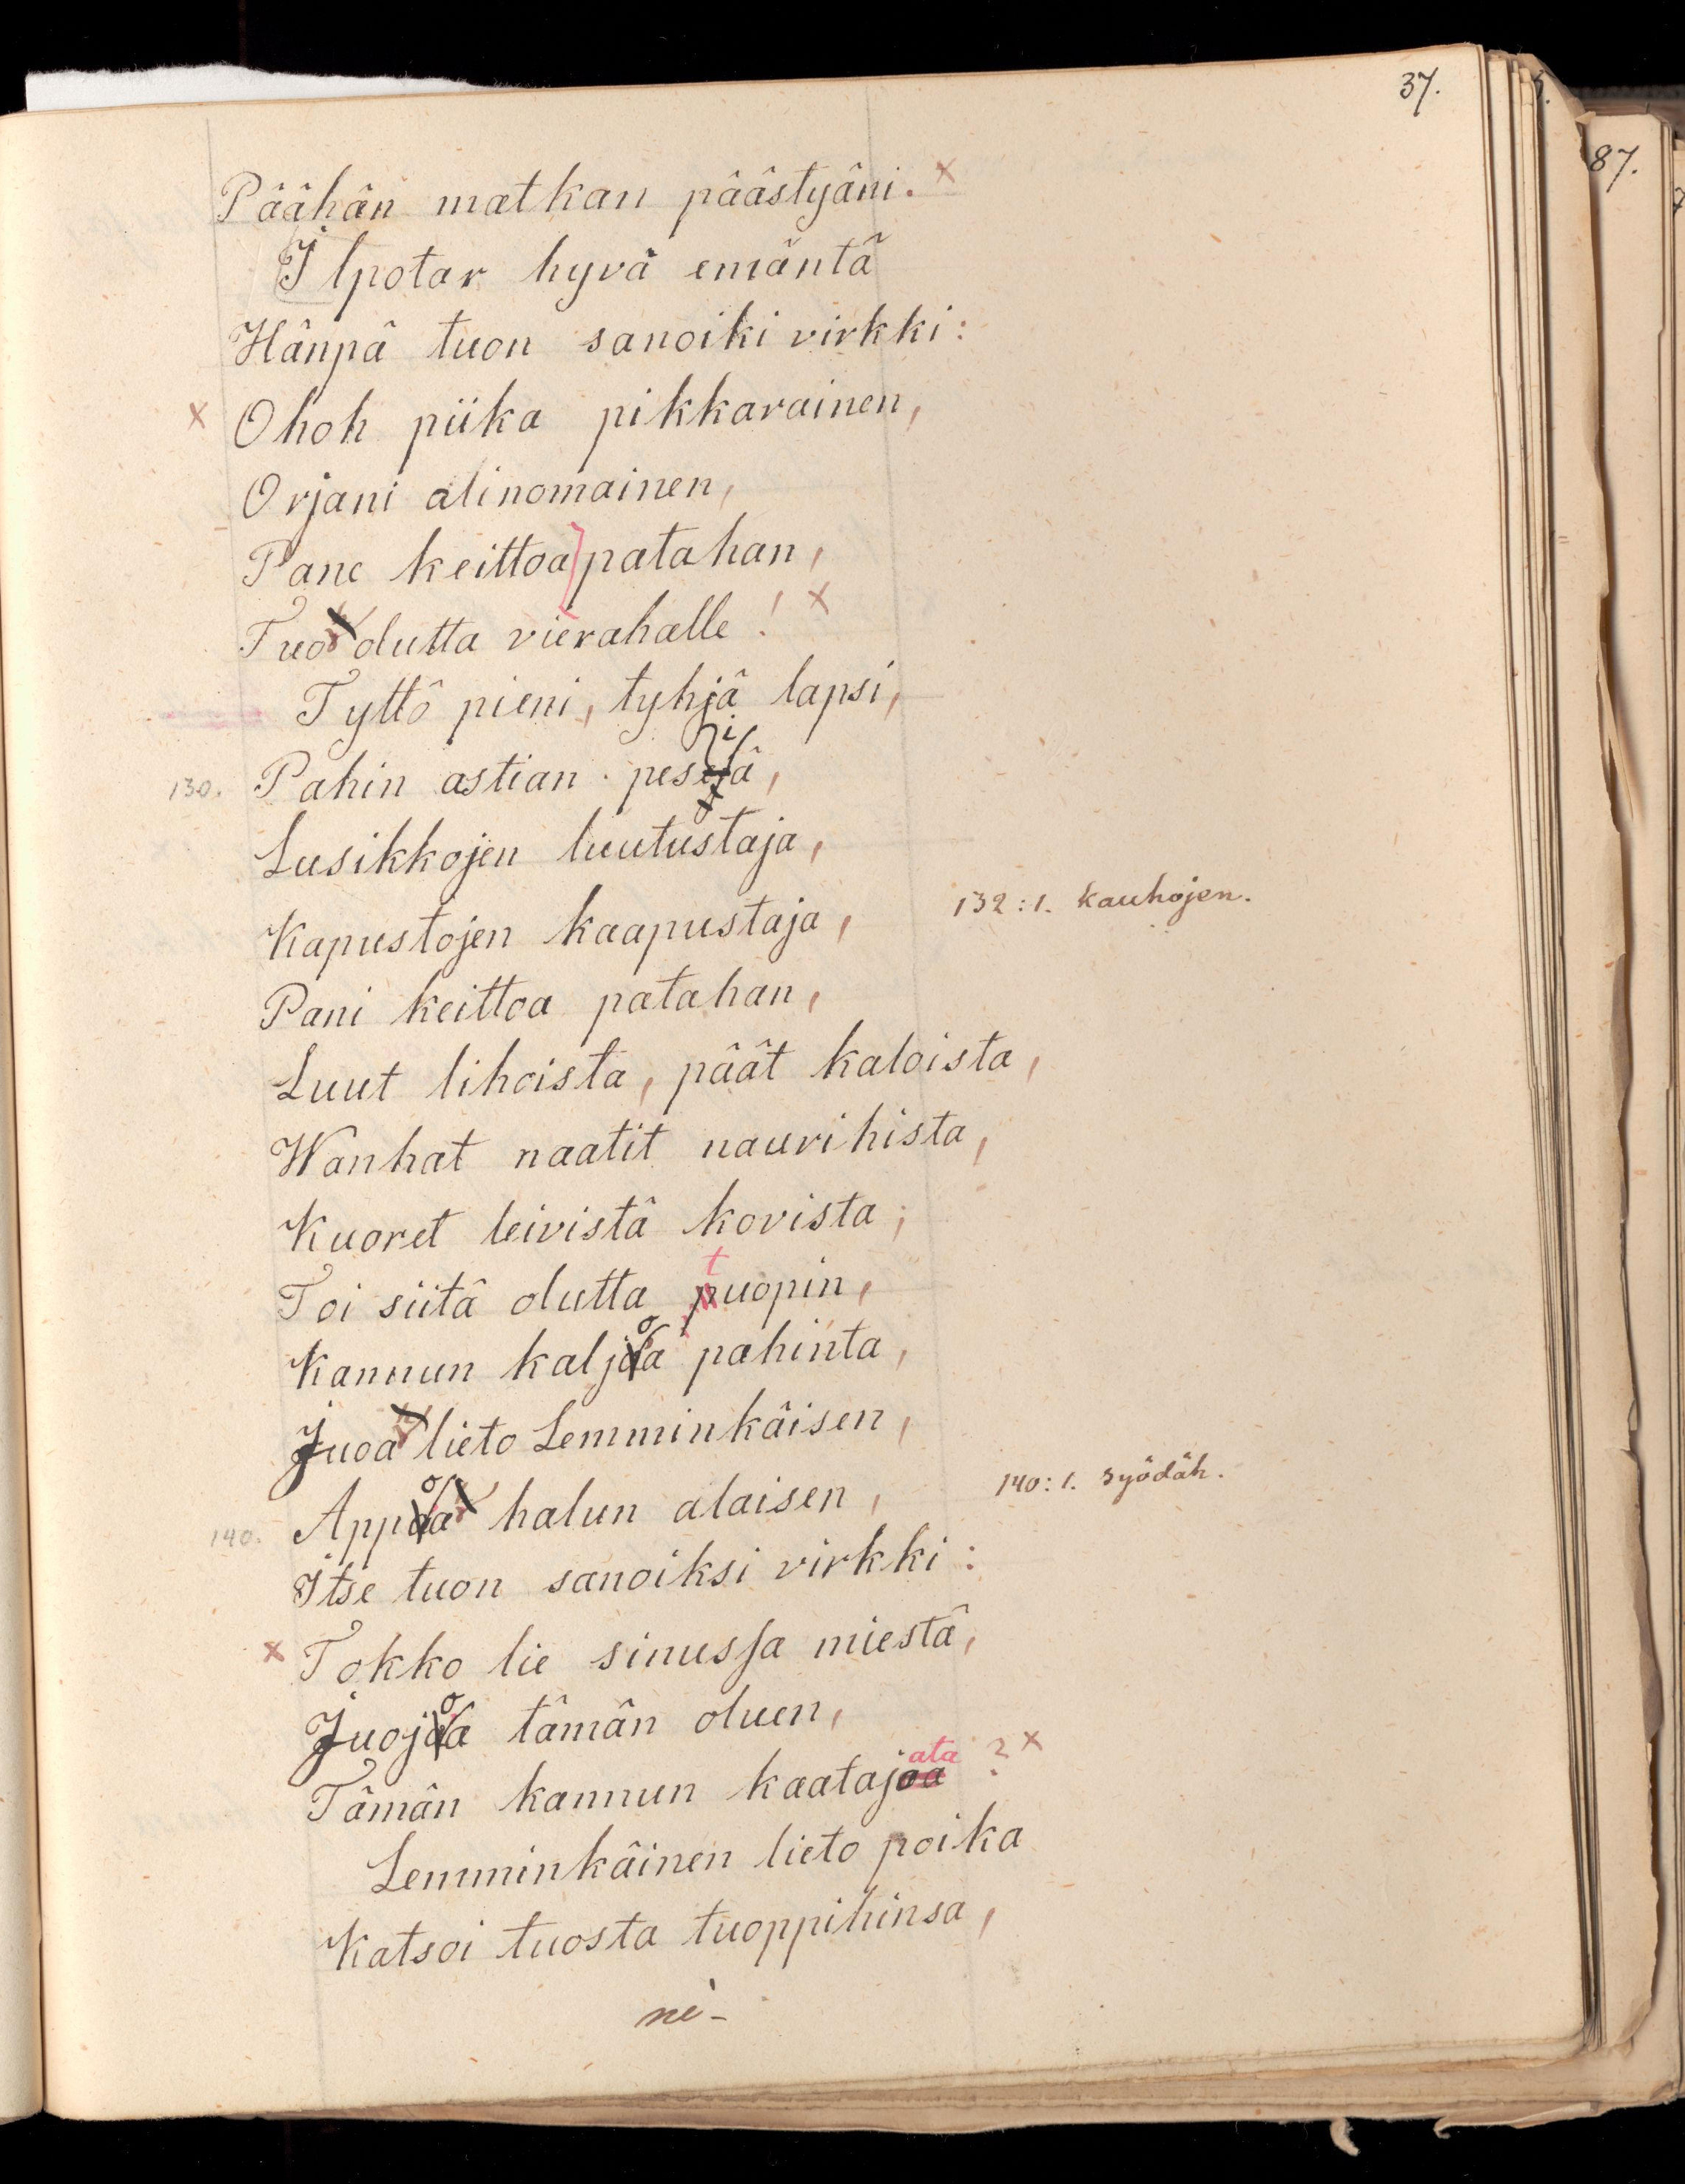 37.
87.
Päähän matkan päästyäni. x
Ilpotar hyvä emäntä
Hänpä tuon sanoiki virkki:
x Ohoh piika pikkarainen,
Orjani alinomainen,
Pane keittoa patahan,
Tuo olutta vierahalle! x
Tyttö pieni, tyhjä lapsi,
130. Pahin astian pesijä,
Lusikkojen luutustaja,
Kapustojen kaapustaja,
132:1. kauhojen.
Pani keittoa patahan,
Luut lihoista, päät kaloista,
Wanhat naatit naurihista,
Kuoret leivistä kovista;
Toi siitä olutta tuopin,
Kannun kaljoa pahinta,
Juoa lieto Lemminkäisen,
140. Appoa halun alaisen,
140:1. syödäh.
Itse tuon sanoiksi virkki:
x Tokko lie sinussa miestä,
Juojoa tämän oluen,
Tämän kannun kaatajata? x
Lemminkäinen lieto poika
Katsoi tuosta tuoppihinsa,
ni-